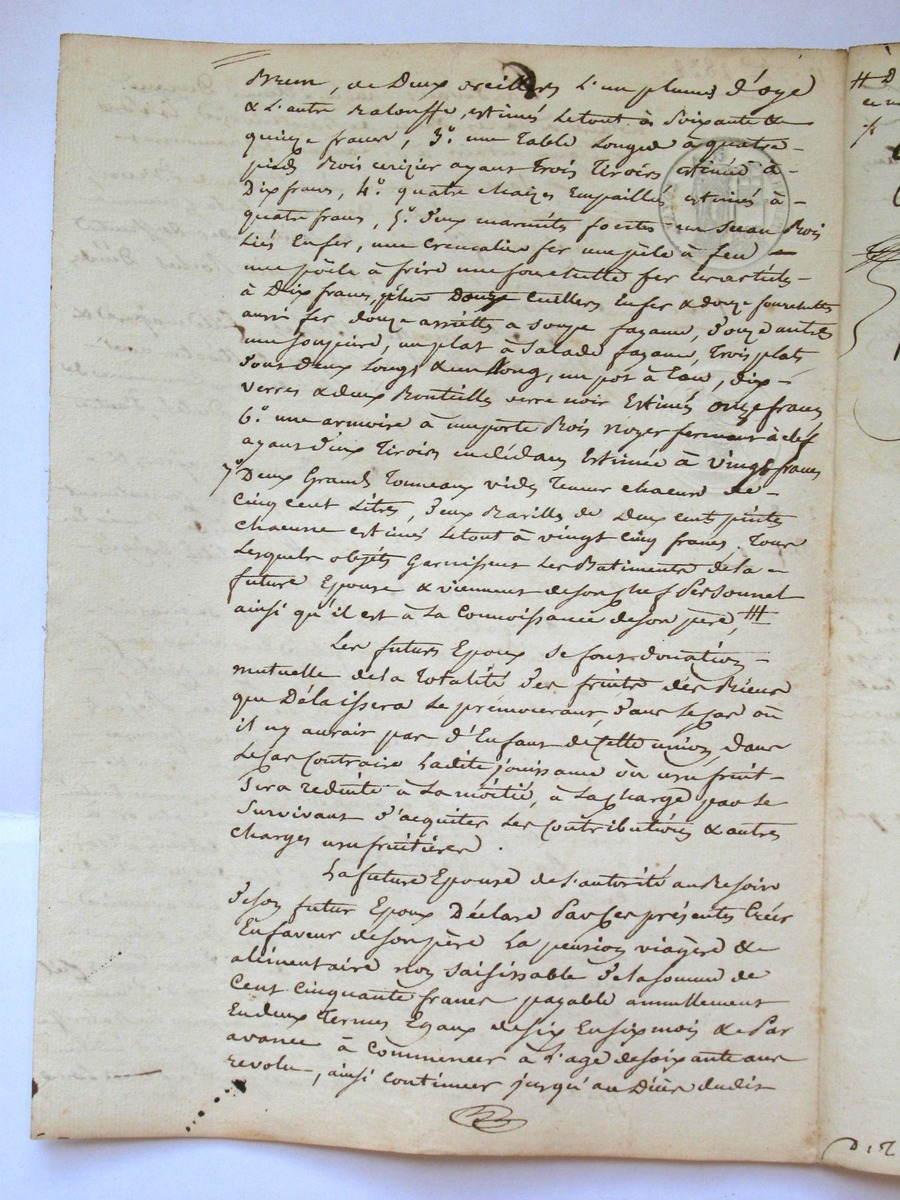 Brun, de Deux oreillers l'un plumes d'oye
& l'autre Balouffe, estimés letout à Soixante &
quinze francs, 3.º une Table Longue à quatre
pieds Bois cerizier ayant Trois Tiroirs estimée à
Dix francs, 4.º quatre chaizes Empaillés estimés à
quatre francs, 5.º deux marmites fontes un Seau Bois
liés Enfer, une Cremalier fer une pèle à feu
une pöile à frire une fourchette fer
à Dix francs, plus Douze Cuillers Enfer & douze fourchettes
aussi fer douze assiettes à soupe fayance, douze autres
une soupiere, un plat à Salade fayance, Trois plats
dont deux Longs & un long, un pot à Eau, dix
verres & deux Bouteilles verre noir Estimés onze francs
6.º une armoire à uneporte Bois noyer fermant à clef
ayant deux Tiroirs endédans Estimée à vingt francs
7º Deux Grands Tonneaux vides Tenant chacun de
Cinq cent Litres, deux Barilles de Deux cent pintes
chacune estimés letout à vingt Cinq francs. Tous
Lesquels objets Garnissent Les Batiments dela
future Epouse & viennent deson chef Personnel
ainsi qu'il est à la Connoissance deson père, #
Les futurs Epoux se font donation
mutuelle dela Totalité des fruits des Biens
que Délaissera le premourant, dans le Cas où
il ny aurait pas d'Enfant de Cette union, dans
Le Cas Contraire Ladite jouissance ou usufruit
Sera reduite à la moitié, à la charge par le
Survivant d'acquiter les Contributions & autres
charges usufruitieres.
La future Epouse de l'autorité au Besoin
deson futur Epoux Déclare Par Ces présentes Créer
Enfaveur deson père la pension viagère &
alimentaire non saisissable de la somme de
Cent cinquante francs payable annuellement
En deux Termes Egaux desix Ensix mois & Par
avance à Commencer à l'age desoixante ans
revolu, ainsi Continuer jusqu'au Décès dudit